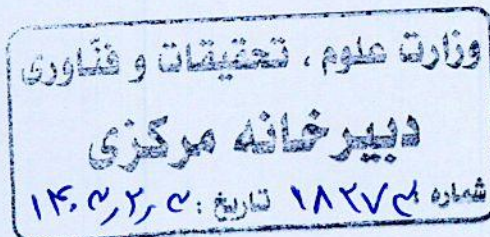 وزارت علوم ، تحقیقات و فنّاوری
دبیرخانه مرکزی
شماره : تاریخ :